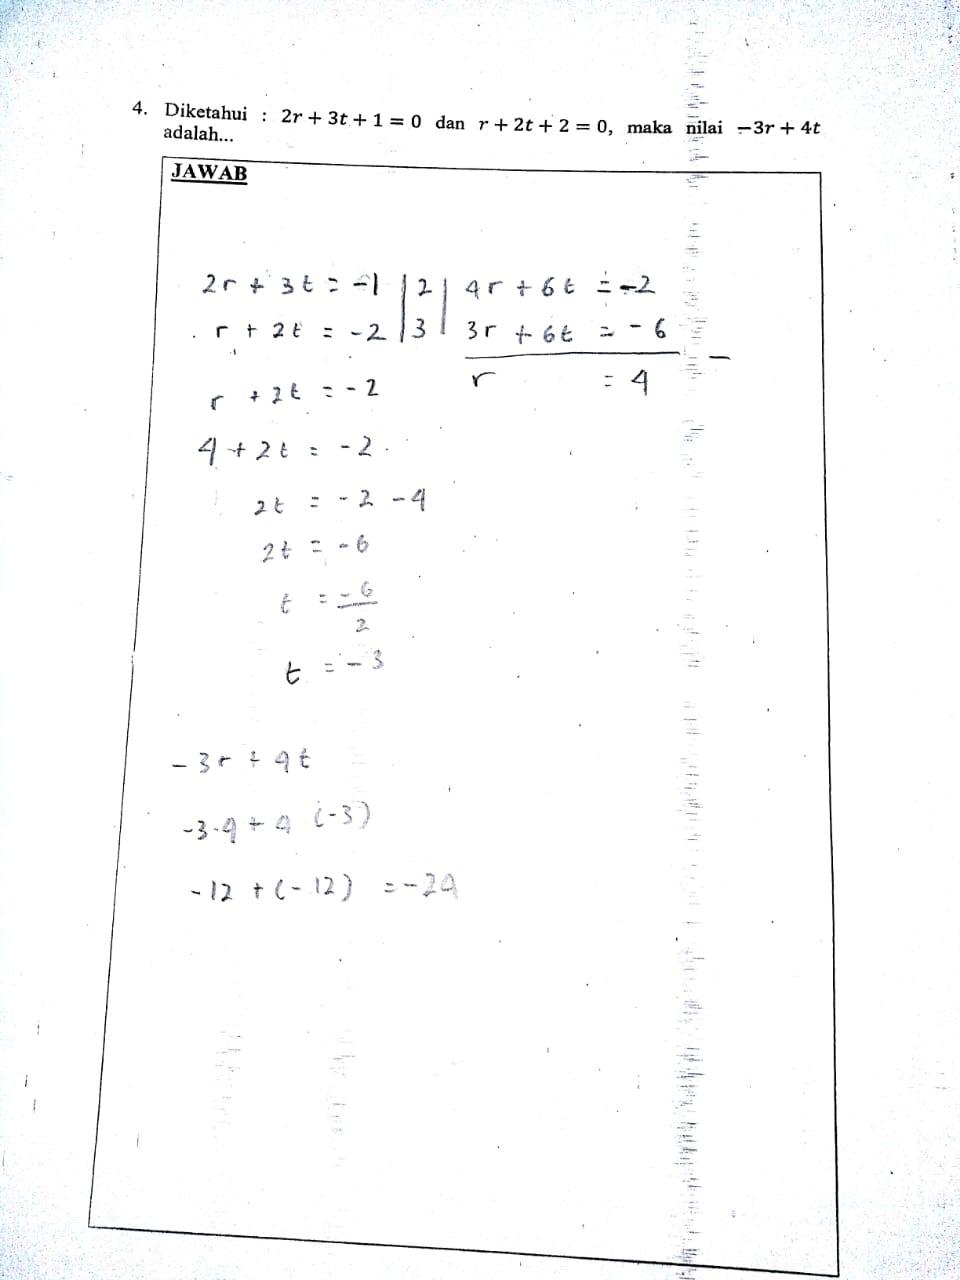 4. Diketahui : 2r + 3t + 1 = 0 dan r + 2t + 2 = 0, maka nilai −3r + 4t
adalah...
JAWAB
2r + 3t = -1 | 2 | 4r + 6t = -2
r + 2t = -2 | 3 | 3r + 6t = -6
r = 4
r + 2t = -2
4 + 2t = -2
2t = -2 -4
2t = -6
t = -6/2
t = -3
-3r + 4t
-3.4 + 4 (-3)
-12 + (-12) = -24